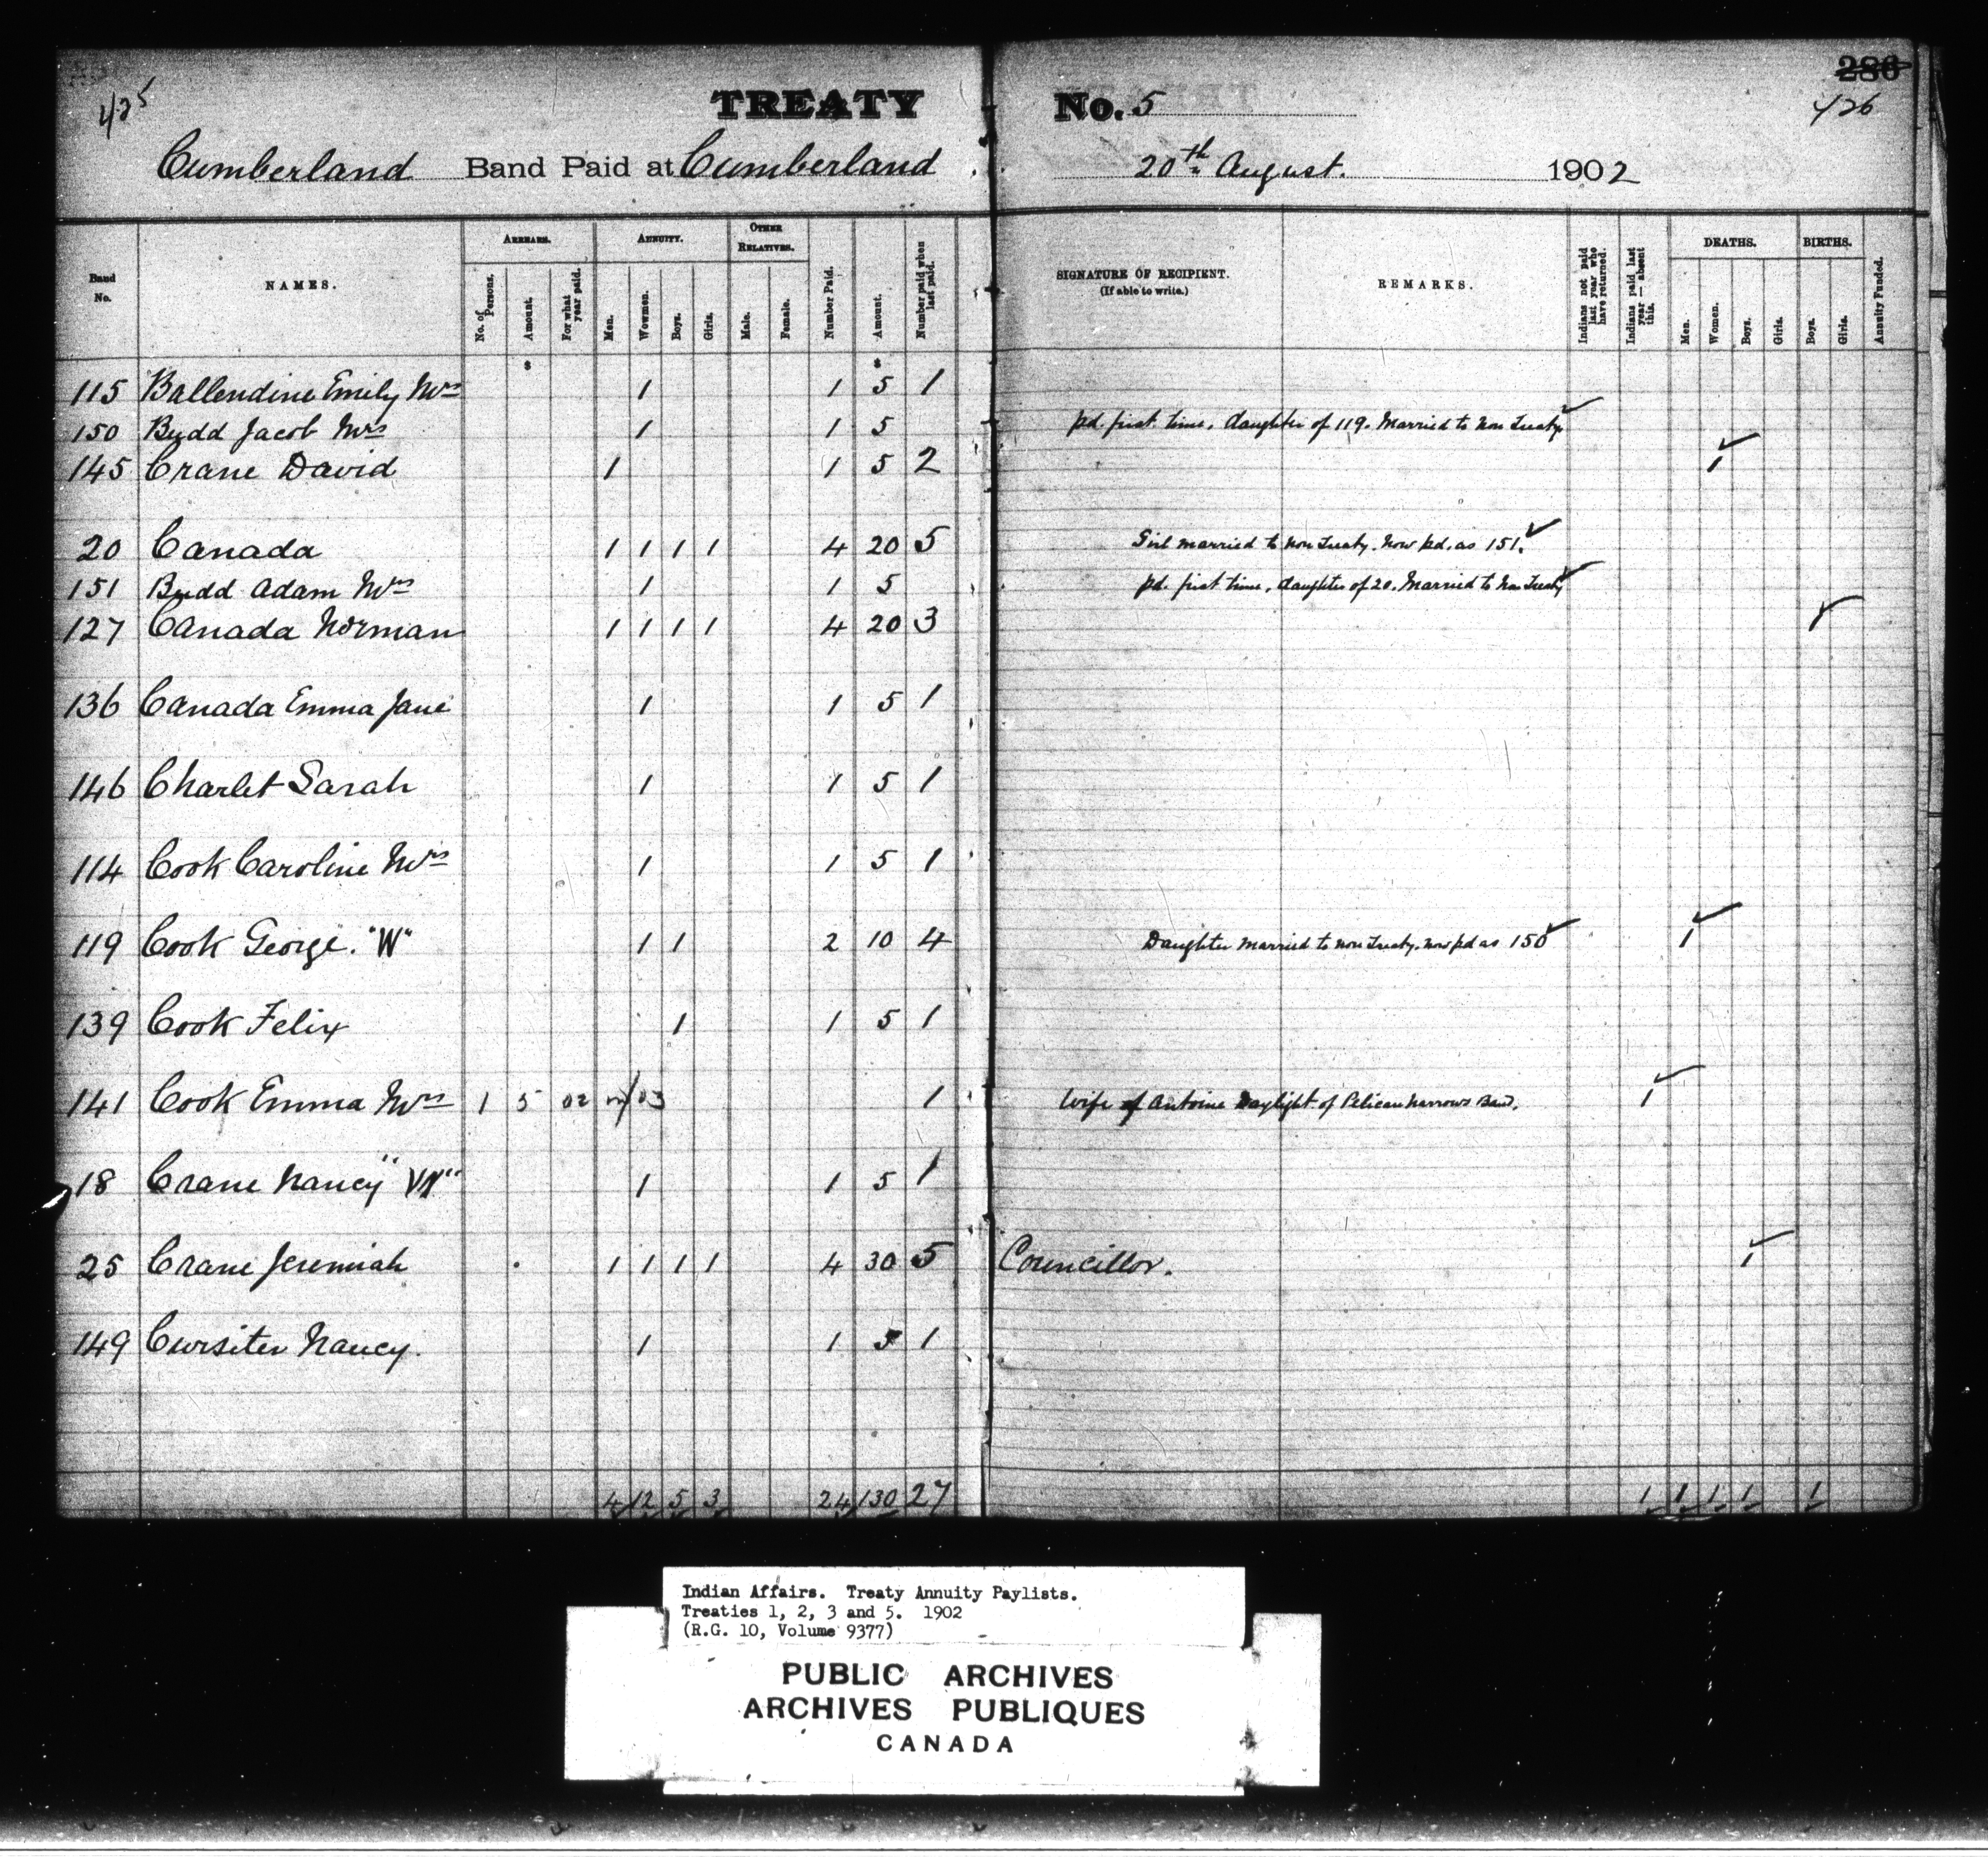 425
TREATY No. 5
286
426
Cumberland Band Paid at Cumberland. 20th August. 1902
Band No. NAMES. ARREARS. No. of Persons. Amount. For what year paid. ANNUITY. Men. Wowmen. Boys. Girls. OTHER RELATIVES. Male. Female. Number Paid. Amount. Number paid when last paid. SIGNATURE OF RECIPIENT. (If able to write.) REMARKS. Indians not paid last year who have returned. Indians paid last year — absent this. DEATHS. Men. Women. Boys. Girls. BIRTHS. Boys. Girls. Annuity Funded.
$ $
115 Ballendine Emily Mrs 1 1 5 1
150 Budd Jacob Mrs 1 1 5 pd. first time. daughter of 119. Married to Non Treaty
145 Crane David 1 1 5 2 1
20 Canada 1 1 1 1 4 20 5 Girl married to non Treaty. Now pd. as 151.
151 Budd Adam Mrs 1 1 5 pd. first time. daughter of 20. Married to Non Treaty
127 Canada Norman 1 1 1 1 4 20 3 1
136 Canada Emma Jane 1 1 5 1
146 Charlet Sarah 1 1 5 1
114 Cook Caroline Mrs 1 1 5 1
119 Cook George. "W" 1 1 2 10 4 Daughter married to non Treaty. now pd as 150 1
139 Cook Felix 1 1 5 1
141 Cook Emma Mrs 1 5 02 /03 1 Wife of Antoine Daylight of Pelican Narrows Band. 1
18 Crane Nancy "W" 1 1 5 1
25 Crane Jeremiah 1 1 1 1 4 30 5 Councillor. 1
149 Cursiter Nancy. 1 1 5 1
4 12 5 3 24 130 27 1 1 1 1 1
Indian Affairs. Treaty Annuity Paylists.
Treaties 1, 2, 3 and 5. 1902
(R.G. 10, Volume 9377)
PUBLIC ARCHIVES
ARCHIVES PUBLIQUES
CANADA